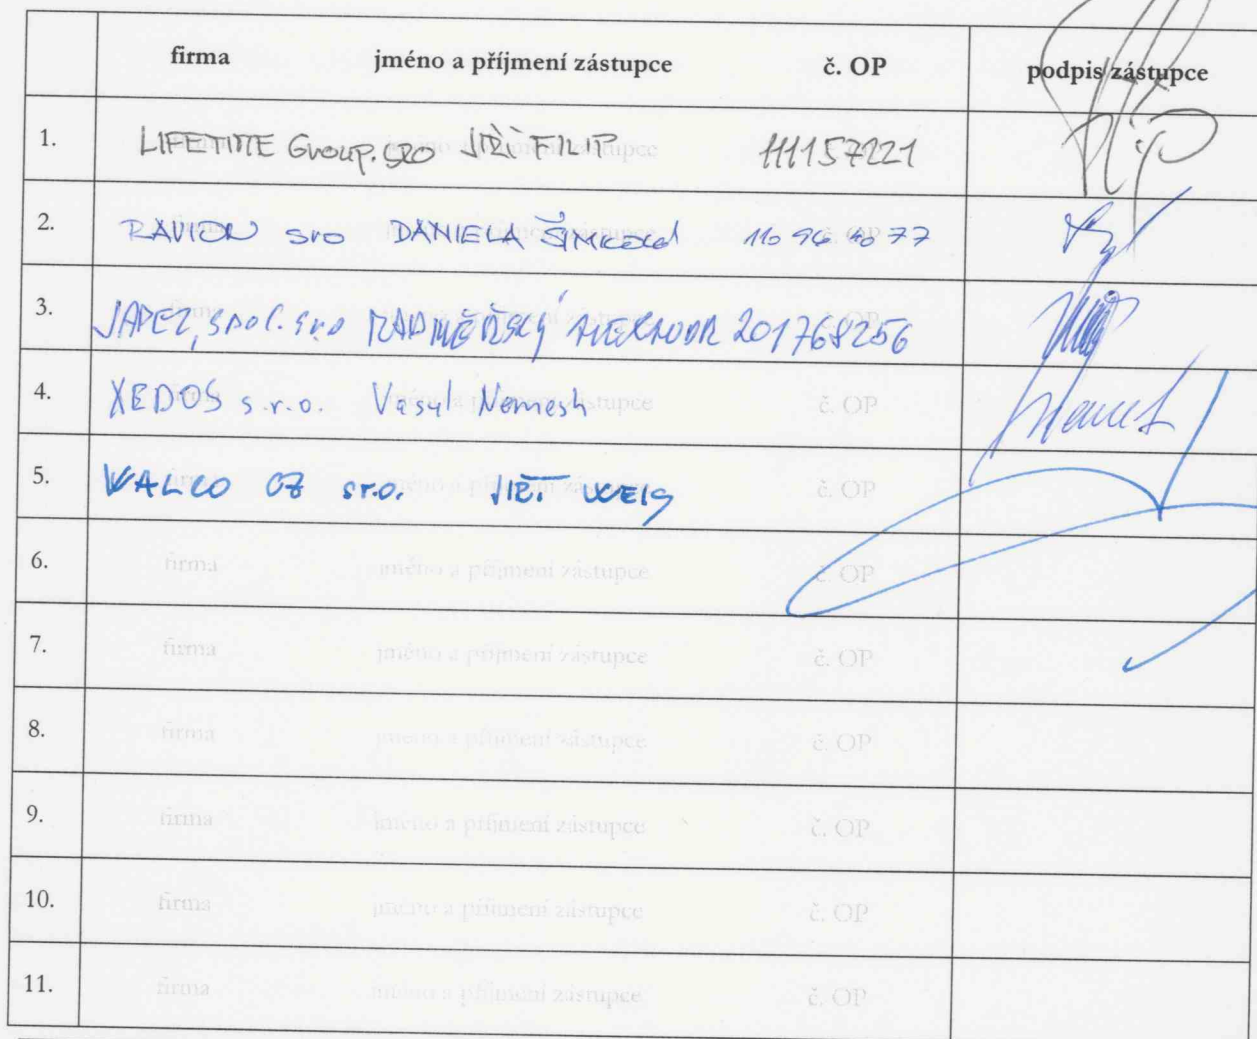 firma jméno a příjmení zástupce č. OP podpis zástupce
1. LIFETIME Group.sro JIŘÍ FILIP 111157221
2. RAVION sro DANIELA
3. JAPEZ, spol. sro ALEXANDR 201768256
4. XEDOS s.r.o. Vasyl Nemesh č. OP
5. VALCO CZ s.r.o. JIŘÍ WEIG č. OP
6. firma jméno a příjmení zástupce č. OP
7. firma jméno a příjmení zástupce č. OP
8. firma jméno a příjmení zástupce č. OP
9. firma jméno a příjmení zástupce č. OP
10. firma jméno a příjmení zástupce č. OP
11. firma jméno a příjmení zástupce č. OP